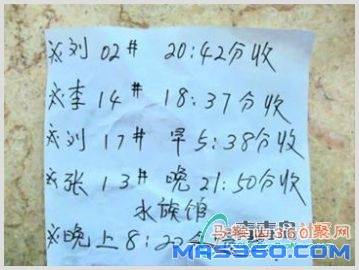 ※刘 02# 20:42分收
※李 14# 18:37分收
※刘 17# 早5:38分收
※张 13# 晚21:50分收
水族馆
※晚上8:22分
马鞍山360聚网
MAS360.COM